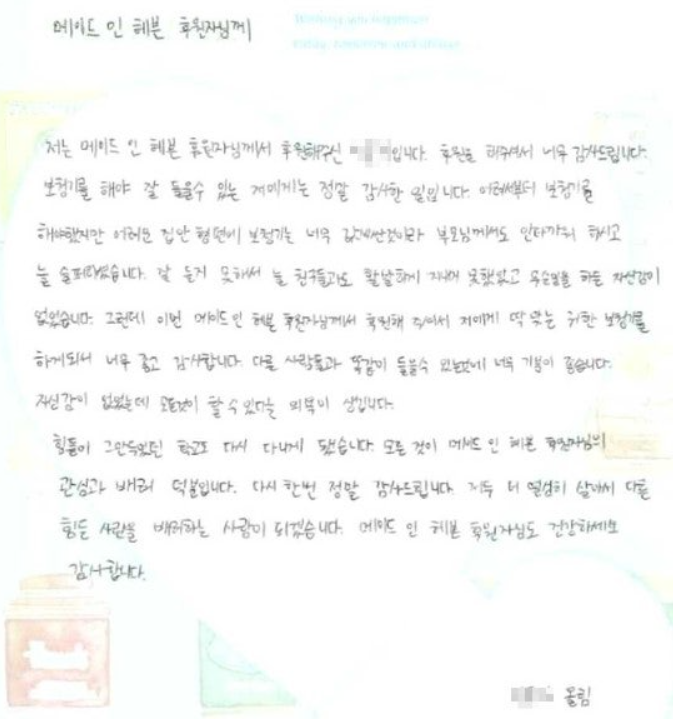 메이드 인 헤븐 후원자님께
저는 메이드 인 헤븐 후원자님께서 후원해주신 입니다. 후원을 해주셔서 너무 감사드립니다.
보청기를 해야 잘 들을수 있는 저에게는 정말 감사한 일입니다. 어려서부터 보청기를
해야했지만 어려운 집안 형편에 보청기는 너무 값비싼것이라 부모님께서도 안타까워 하시고
늘 슬퍼하셨습니다. 잘 듣지 못해서 늘 친구들과도 활발하게 지내지 못했었고 무슨일을 하든 자신감이
없었습니다. 그런데 이번 메이드 인 헤븐 후원자님께서 후원해 주셔서 저에게 딱 맞는 귀한 보청기를
하게되서 너무 좋고 감사합니다. 다른 사람들과 똑같이 들을수 있는것에 너무 기분이 좋습니다.
자신감이 없었는데 모든것이 할 수 있다는 의욕이 생깁니다.
힘들어 그만두었던 학교도 다시 다니게 됐습니다. 모든 것이 메이드 인 헤븐 후원자님의
관심과 배려 덕분입니다. 다시 한번 정말 감사드립니다. 저두 더 열심히 살아서 다른
힘든 사람을 배려하는 사람이 되겠습니다. 메이드 인 헤븐 후원자님도 건강하세요
감사합니다.
올림